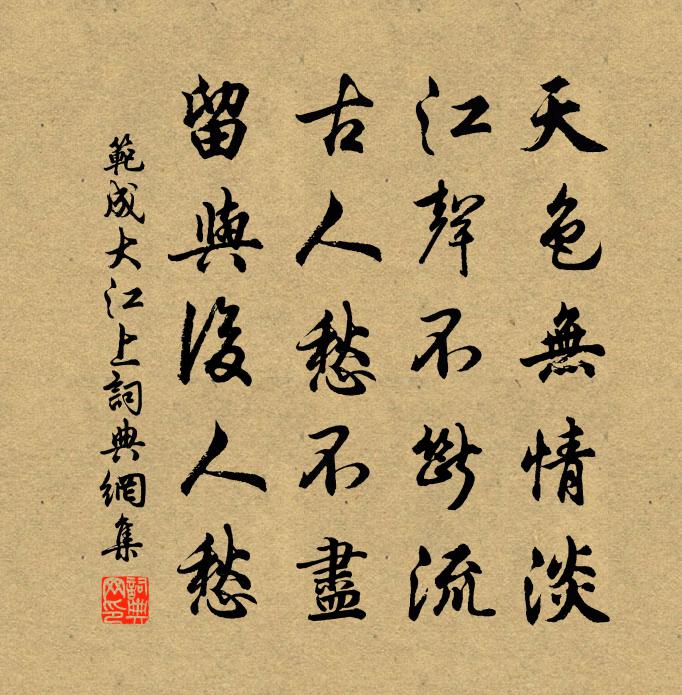 天色無情淡
江聲不斷流
古人愁不盡
留與後人愁
範成大江上詞典網集
詞典網印